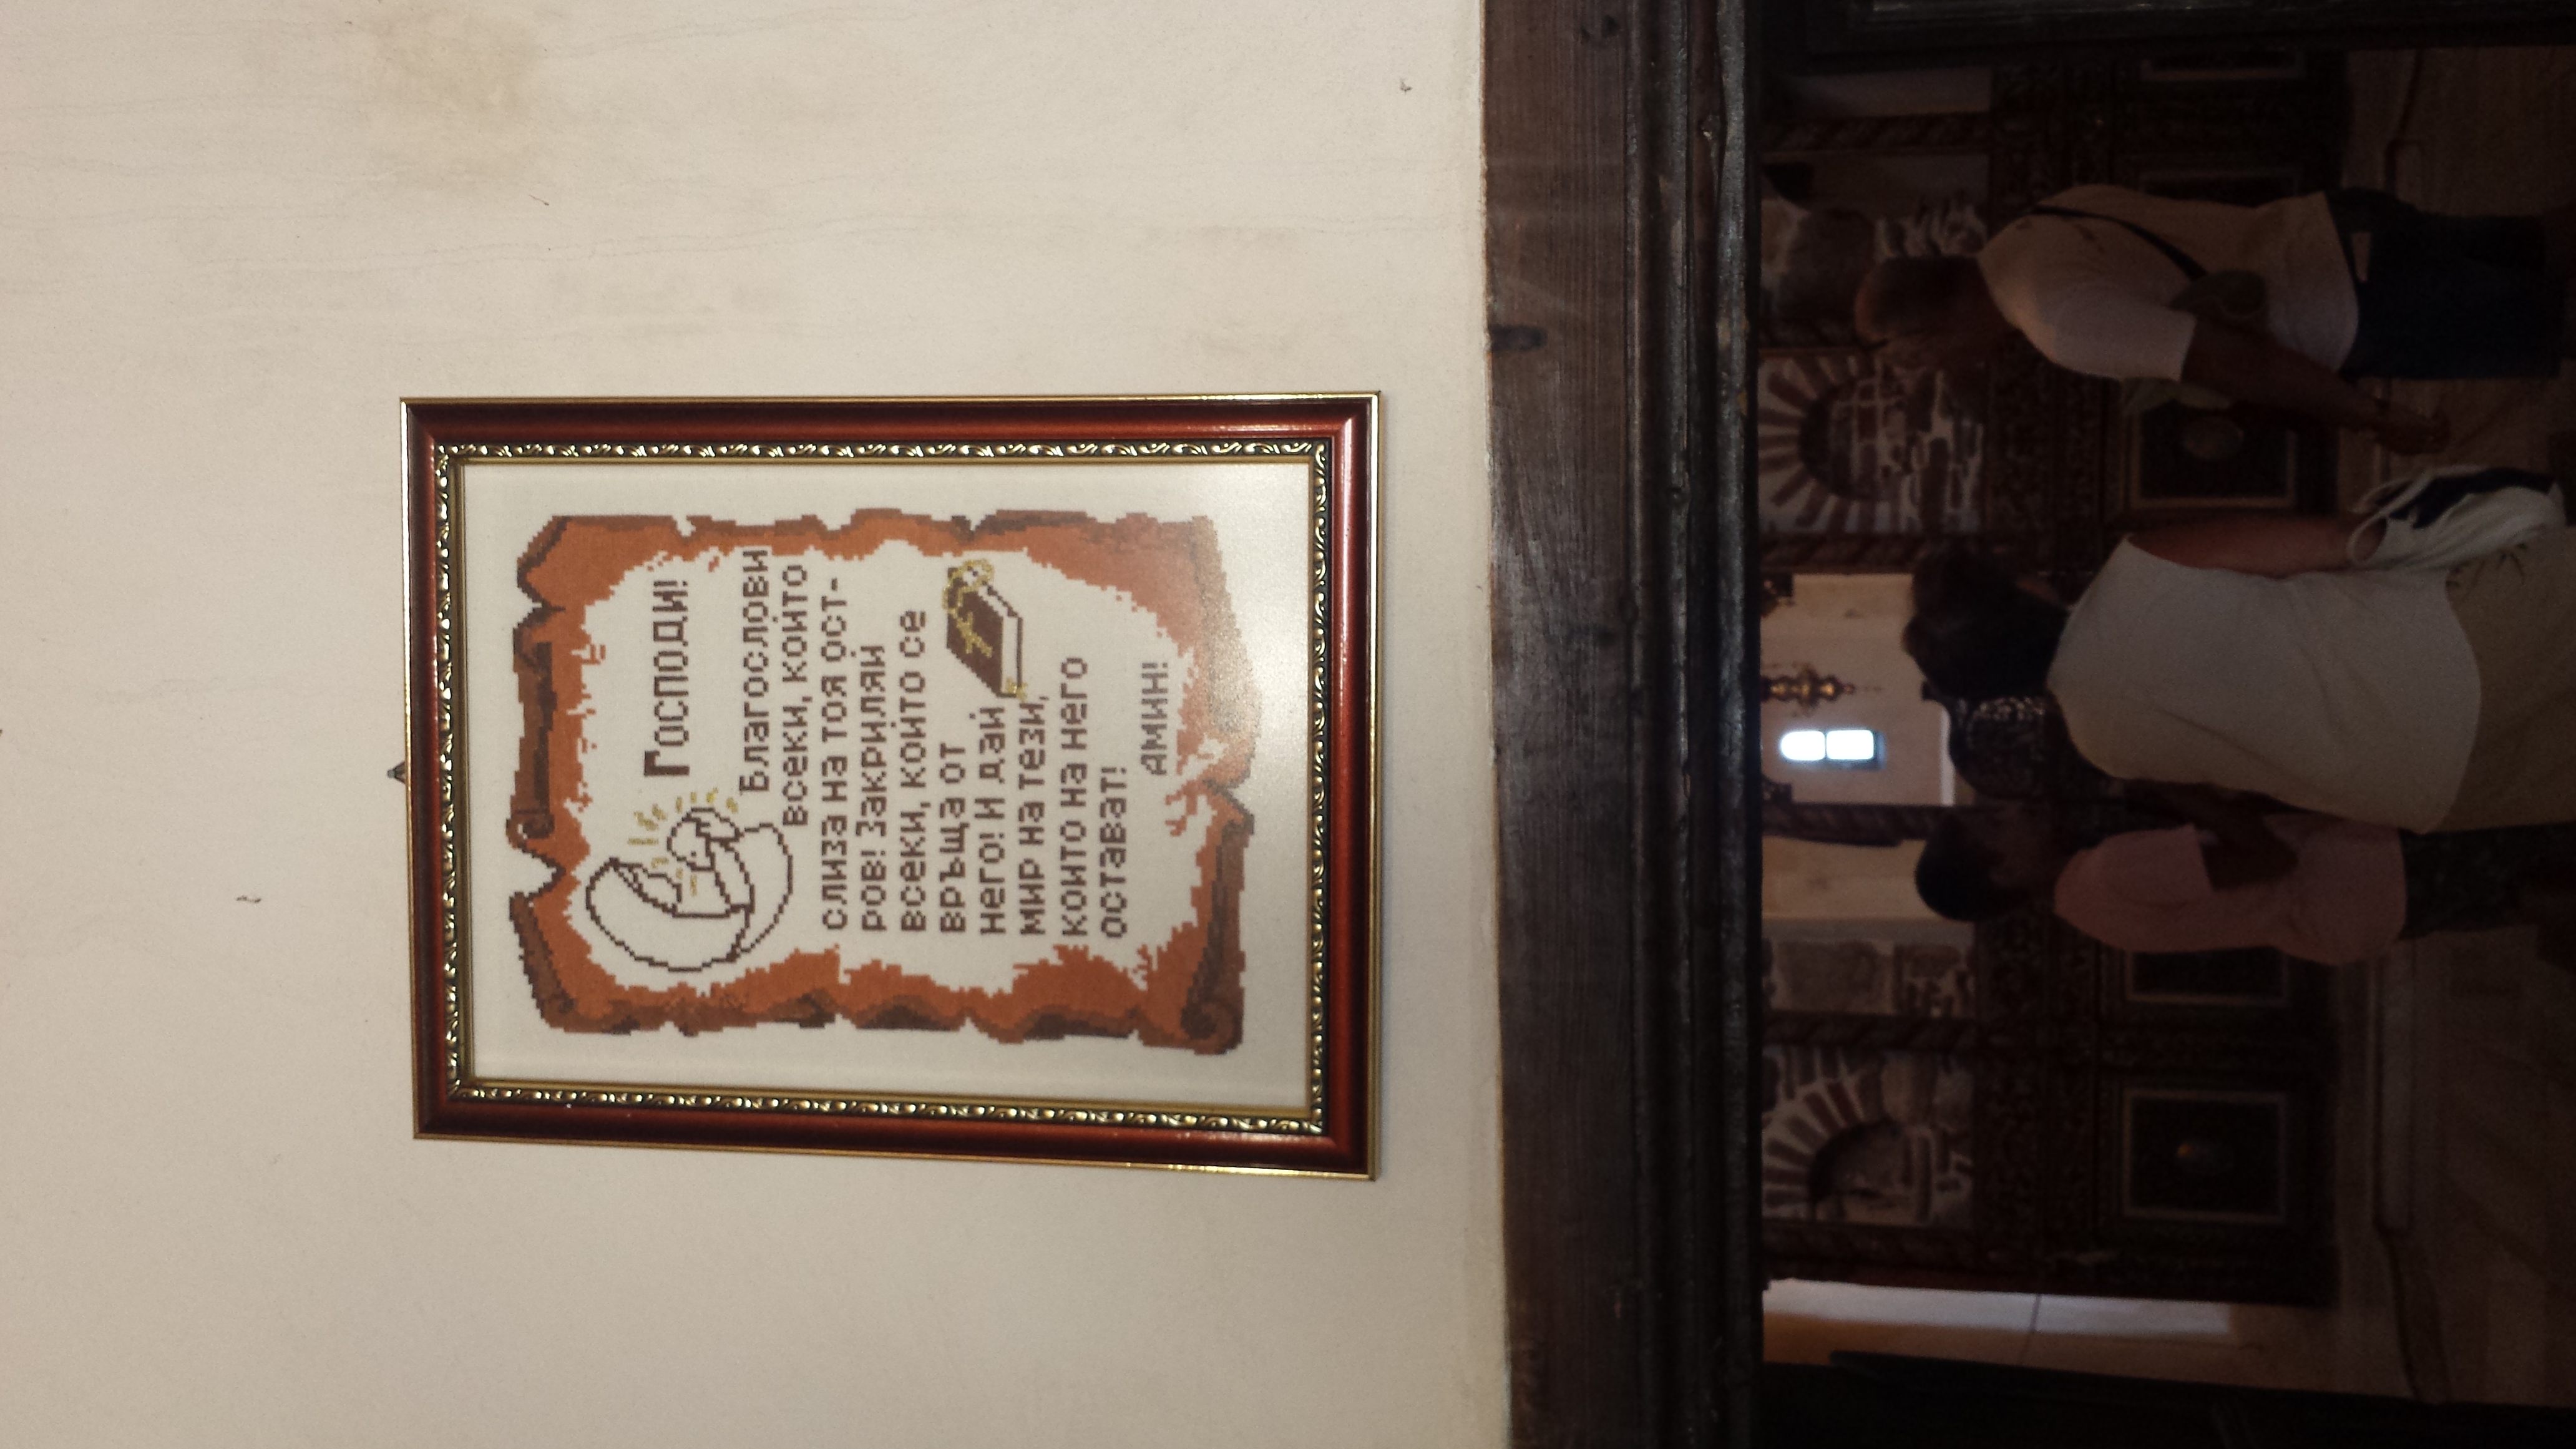 Господи!
Благослови
всеки, който
слиза на тоя ост-
ров! Закриляй
всеки, който се
връща от
него! И дай
мир на тези,
които на него
остават!
Амин!